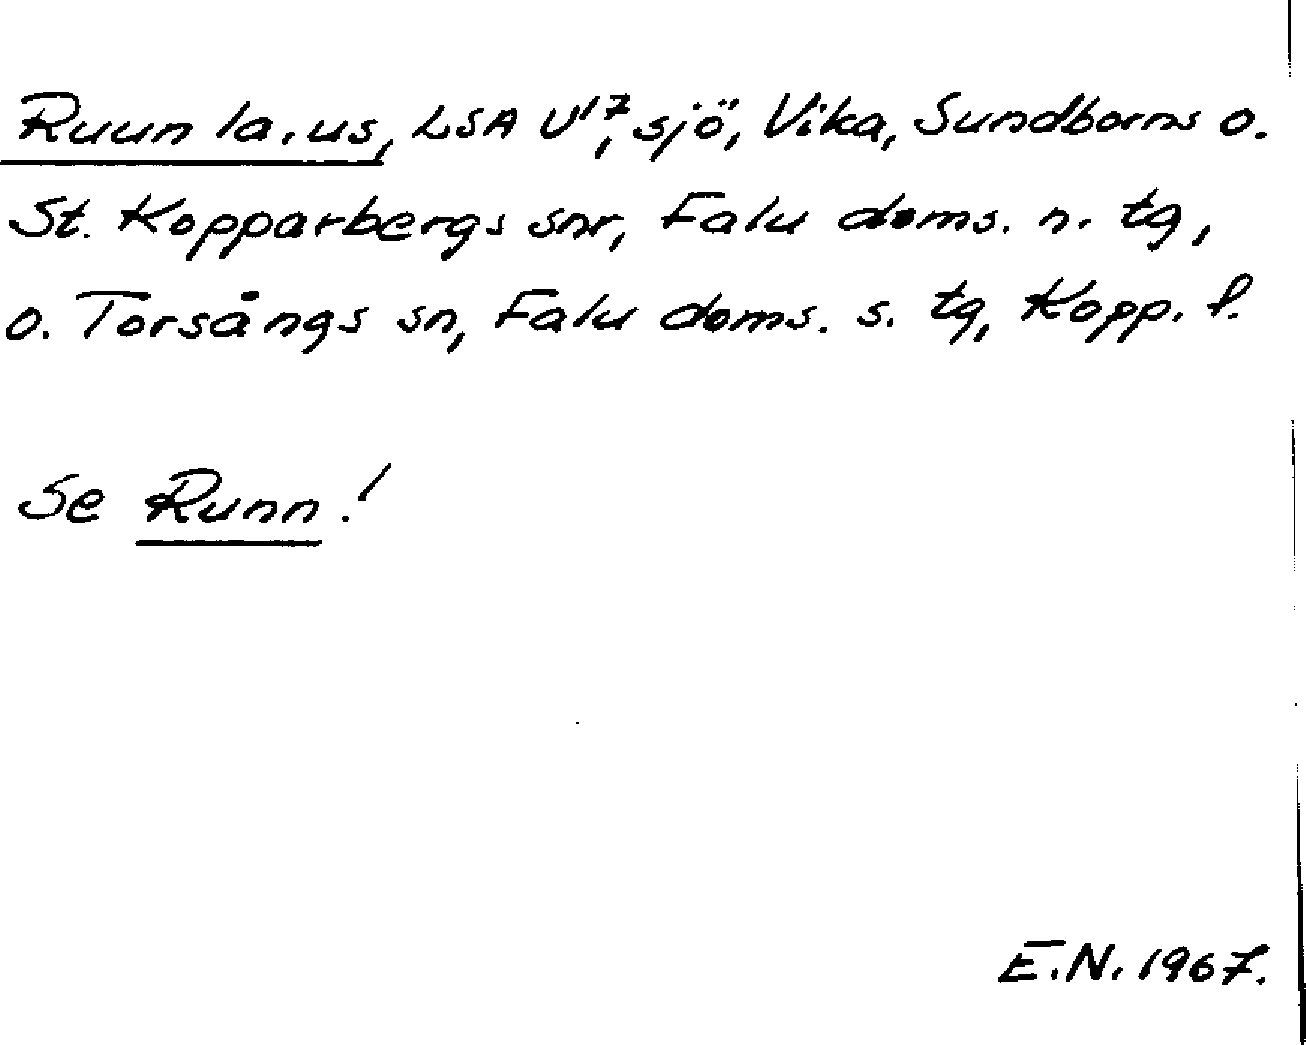 Ruun la.us, LSA U17, sjö, Vika, Sundborns o.
St. Kopparbergs snr, Falu doms. n. tg,
o. Torsångs sn, Falu doms. s. tg, Kopp. l.
Se Runn!
E.N. 1967.